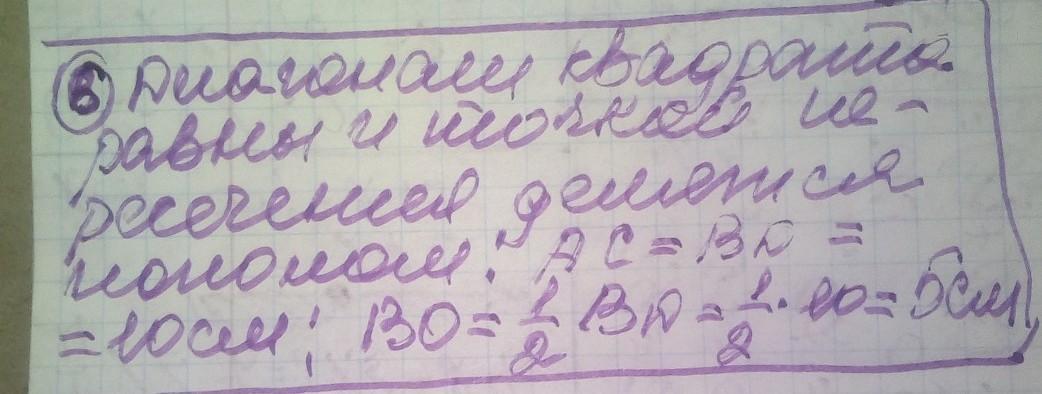 6 Диагонали квадрата
равны и точкой пе-
ресечения делятся
пополам: AC = BD =
= 10 см; BO = 1/2 BD = 1/2 · 10 = 5 см,